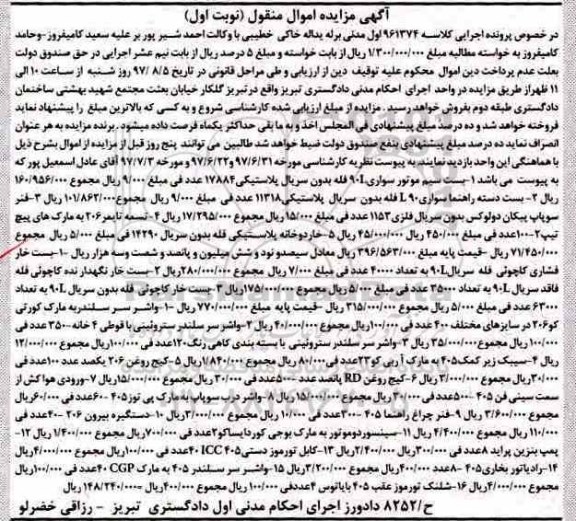 آگهی مزایده اموال منقول (نوبت اول)
در خصوص پرونده اجرایی کلاسه ۹۶۱۳۷۴ اول مدنی برله یداله خاکی خطیبی با وکالت احمد شیر پور بر علیه سعید کامیفروز-وحامد
کامیفروز به خواسته مطالبه مبلغ ۱/۳۰۰/۰۰۰/۰۰۰ ریال از بابت خواسته و مبلغ ۵ درصد ریال از بابت نیم عشر اجرایی در حق صندوق دولت
بعلت عدم پرداخت دین اموال محکوم علیه توقیف دین از ارزیابی و طی مراحل قانونی در تاریخ ۹۷/۸/۵ روز شنبه از ساعت ۱۰ الی
۱۱ ظهراز طریق مزایده در واحد اجرای احکام مدنی دادگستری تبریز واقع در تبریز گلکار خیابان بعثت مجتمع شهید بهشتی ساختمان
دادگستری طبقه دوم بفروش خواهد رسید . مزایده از مبلغ ارزیابی شده کارشناسی شروع و به کسی که بالاترین مبلغ را پیشنهاد نماید
فروخته خواهد شد و ده درصد مبلغ پیشنهادی فی المجلس اخذ و به ما بقی حداکثر یکماه فرصت داده میشود . برنده مزایده به هر عنوان
انصراف نماید ده درصد مبلغ پیشنهادی بنفع صندوق دولت ضبط خواهد شد طالبین می توانند پنج روز قبل از مزایده از اموال بشرح ذیل
با هماهنگی این واحد بازدید نمایند. به پیوست نظریه کارشناسی مورخه ۹۷/۶/۳۱ و ۹۷/۶/۲۲ و مورخه ۹۷/۷/۳ آقای عادل اسمعیل پور که
به پیوست می باشد ۱-بست سیم موتور سواری ۹۰L فله بدون سریال پلاستیکی ۱۷۸۸۴ عدد فی مبلغ ۹/۰۰۰ ریال مجموع ۱۶۰/۹۵۶/۰۰۰
ریال ۲- بست دسته راهنما سواری ۹۰ L فله بدون سریال پلاستیکی ۱۱۳۱۸ عدد فی مبلغ ۹/۰۰۰ ریال مجموع ۱۰۱/۸۶۲/۰۰۰ ریال ۳-فنر
سوپاپ پیکان دولوکس بدون سریال فلزی ۱۱۵۳ عدد فی مبلغ ۱۵/۰۰۰ ریال مجموع ۱۷/۲۹۵/۰۰۰ ریال ۴- تسمه تایمر ۲۰۶ به مارک های پیچ
تیپ۲-۱۰۰عدد فی مبلغ ۴۵۰/۰۰۰ ریال ۴۵/۰۰۰/۰۰۰ ریال ۵-خار دوخانه پلاستیکی فله بدون سریال ۱۴۲۹۰ فی مبلغ ۵/۰۰۰ ریال مجموع
۷۱/۴۵۰/۰۰۰ ریال -قیمت پایه مبلغ ۳۹۶/۵۶۳/۰۰۰ ریال معادل سیصدو نود و شش میلیون و پانصد و شصت وسه هزار ریال -۱-بست خار
فشاری کاچوئی فله سریال۹۰L به تعداد ۴۰۰۰۰ عدد فی مبلغ ۷/۰۰۰ ریال مجموع ۲۸۰/۰۰۰/۰۰۰ریال ۲-بست خار نگهدار نده کاچوئی فله
فاقد سریال ۹۰L به تعداد ۳۵۰۰۰ عدد فی مبلغ ۵/۰۰۰ ریال مجموع ۱۷۵/۰۰۰/۰۰۰ریال ۳-بست خار کاچوئی فله بدون سریال ۹۰L به تعداد
۶۳۰۰۰عدد فی مبلغ ۵/۰۰۰ ریال مجموع ۳۱۵/۰۰۰/۰۰۰ ریال -قیمت پایه مبلغ ۷۷۰/۰۰۰/۰۰۰ ریال -۱-واشر سر سلندربه مارک کورتی
کو۲۰۶ در سایزهای مختلف ۴۰۰ عدد فی ۱۰۰/۰۰۰ ریال مجموع ۴۰/۰۰۰/۰۰۰ ریال ۲-واشر سر سلندر ستروئینی با قوطی ۴ خانه-۳۵۰ عدد فی
۱۰۰/۰۰۰ریال مجموع ۳۵/۰۰۰/۰۰۰ ریال ۳-واشر سر سلندر ستروئینی با بسته بندی کاهی رنگ-۱۲۰عدد فی ۱۰۰/۰۰۰ریال مجموع ۱۲/۰۰۰/۰۰۰
ریال ۴-سیبک زیر کمک۴۰۵ به مارک آ ربی کو۲۳عدد فی۸۰/۰۰۰ ریال مجموع ۱/۸۴۰/۰۰۰ ریال ۵-کیج روغن ۲۰۶ یکصد عدد ۱۰۰عدد فی
۳۰/۰۰۰ریال مجموع ۳/۰۰۰/۰۰۰ ریال ۶-کیج روغن RD پانصد عدد -۵۰۰عدد فی ۳۰/۰۰۰ ریال مجموع ۱۵/۰۰۰/۰۰۰ریال ۷-ورودی هوا کش از
سمت سینی فن ۴۰۵ -۵۰۰عدد فی ۳۰/۰۰۰ریال مجموع ۱۵/۰۰۰/۰۰۰ ریال ۸-واشر درب سوپاپ با مارک پی توز ۴۰۵-۶۰عدد فی ۶۰/۰۰۰ریال
مجموع ۳/۶۰۰/۰۰۰ ریال ۹-فنر چراغ راهنما ۴۰۵ -۳۰۰عدد فی ۱۰/۰۰۰ ریال مجموع ۳/۰۰۰/۰۰۰ریال ۱۰-دستگیره بیرون ۲۰۶ -۴۰عدد فی
۱۱۰/۰۰۰ ریال مجموع ۴/۴۰۰/۰۰۰ ریال ۱۱-سینسوردوموتور به مارک بوجی کوردابساکو۲عدد فی ۷۰۰/۰۰۰ریال مجموع ۱/۴۰۰/۰۰۰ ریال ۱۲-
پمپ بنزین پراید ۸عدد فی ۳۰۰/۰۰۰ ریال ۲/۴۰۰/۰۰۰ ریال ۱۳-کابل تورموز دستی۴۰۵ ICC ۴۰عدد فی ۱۰۰/۰۰۰ریال مجموع ۴/۰۰۰/۰۰۰ریال
۱۴-رادیاتور بخاری۴۰۵ -۸عدد ۴۰۰/۰۰۰ریال مجموع ۳/۲۰۰/۰۰۰ریال ۱۵-واشر سر سلندر ۴۰۵ به مارک CGP ۴۰عدد فی ۱۰۰/۰۰۰ریال
مجموع ۴/۰۰۰/۰۰۰ریال ۱۶-شلنک تورموز عقب ۴۰۵ باباتوس ۴عددفی ۱۰۰/۰۰۰ریال مجموع ۴۰۰/۰۰۰ریال =۱۴۸/۲۴۰/۰۰۰ ریال
ح/۸۲۵۲ دادورز اجرای احکام مدنی اول دادگستری تبریز - رزاقی خضرلو